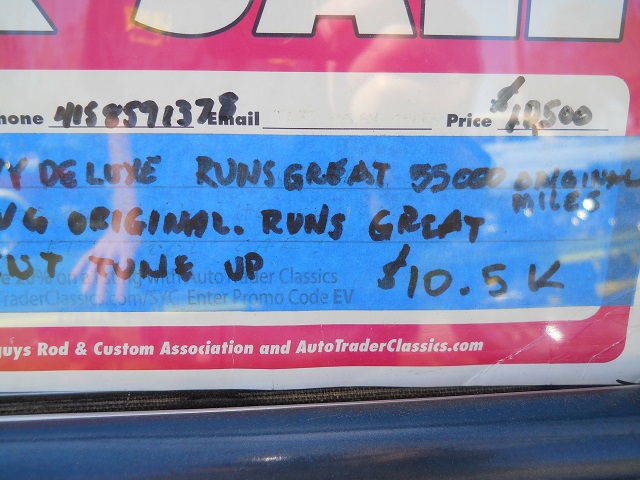 SALE
hone 4158591378 Email Price $10,500
Y DELUXE RUNS GREAT 55000 ORIGINAL MILES
NG ORIGINAL. RUNS GREAT
ENT TUNE UP $10.5K
with AutoTrader Classics
TraderClassics.com/SYC Enter Promo Code EV
guys Rod & Custom Association and AutoTraderClassics.com